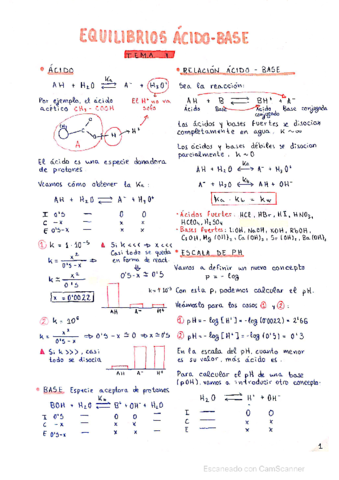 EQUILIBRIOS ÁCIDO-BASE
TEMA 4
* ÁCIDO
AH + H2O ⇌ A⁻ + H3O⁺
Ka
Por ejemplo, el ácido
acético CH3 - COOH
El H⁺ no va
solo
El ácido es una especie donadora
de protones.
Veamos cómo obtener la Ka:
AH + H2O ⇌ A⁻ + H3O⁺
I 0'5 — 0 0
C -x — x x
E 0'5-x — x x
① k = 1·10⁻⁵
k = x² / 0'5-x
k = x² / 0'5
x = 0'0022
Si k <<< ⇒ x <<<
Casi todo se queda
en forma de react.
0'5-x ≅ 0'5
AH A⁻ H⁺
② k = 10⁶
k = x² / 0'5-x ⇒ 0'5-x ≅ 0 ⇒ x ≅ 0'5
Si k >>>, casi
todo se disocia
AH A⁻ H⁺
* BASE Especie aceptora de protones
BOH + H2O ⇌ B⁺ + OH⁻ + H2O
I 0'5 — 0 0
C -x — x x
E 0'5-x — x x
* RELACIÓN ÁCIDO - BASE
Sea la reacción:
AH + B ⇌ BH⁺ + A⁻
Ácido Base Ácido conjugado Base conjugada
Los ácidos y bases fuertes se disocian
completamente en agua. K ~ ∞
Los ácidos y bases débiles se disocian
parcialmente. K ~ 0
AH + H2O ⇌ A⁻ + H3O⁺
Ka
A⁻ + H2O ⇌ AH + OH⁻
Kb
Ka · Kb = Kw
- Ácidos fuertes: HCl, HBr, HI, HNO3,
HClO4, H2SO4
- Bases fuertes: LiOH, NaOH, KOH, RbOH,
CsOH, Mg(OH)2, Ca(OH)2, Sr(OH)2, Ba(OH)2
* ESCALA DE PH
Vamos a definir un nuevo concepto
p = -log
Con esta p, podemos calcular el pH.
Veámoslo para los casos ① y ②:
① pH = -log[H⁺] = -log(0'0022) = 2'66
② pH = -log[H⁺] = -log(0'5) = 0'3
En la escala del pH, cuanto menor
es su valor, más ácido es.
Para calcular el pH de una base
(pOH), vamos a introducir otro concepto.
H2O ⇌ H⁺ + OH⁻
I — 0 0
C — x x
E — x x
1
Escaneado con CamScanner